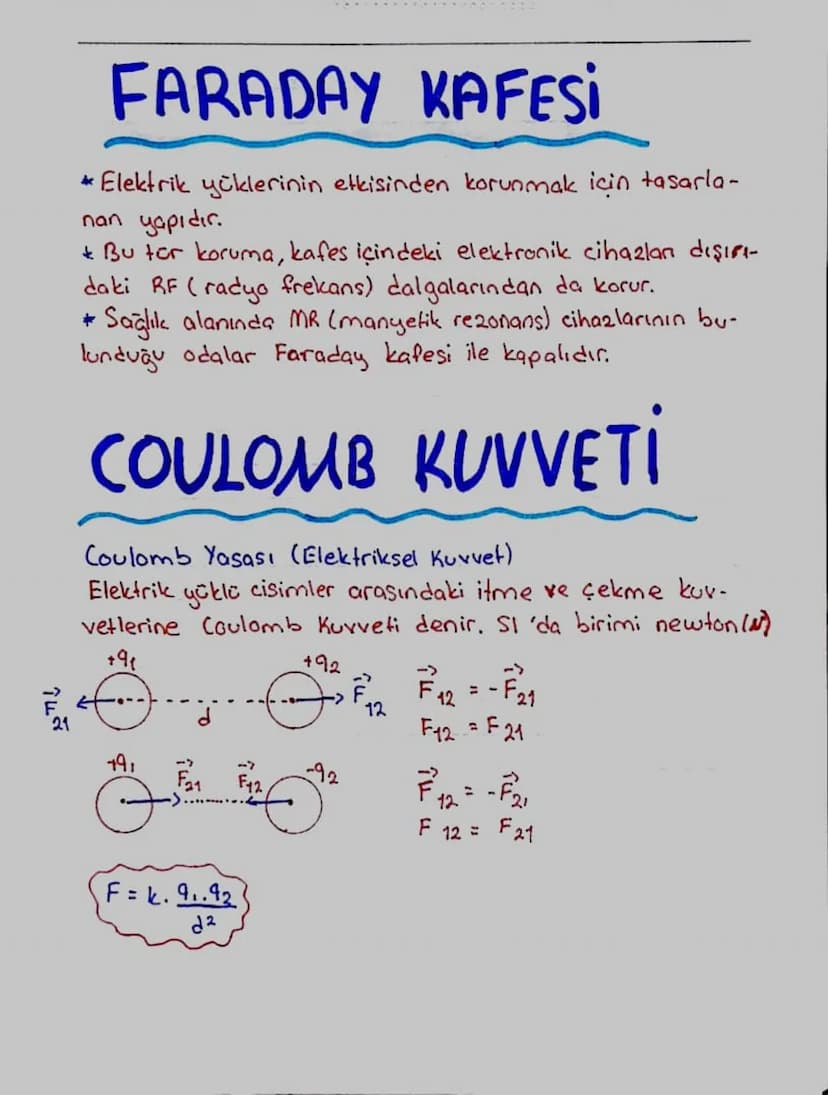 FARADAY KAFESİ
* Elektrik yüklerinin etkisinden korunmak için tasarla-
nan yapıdır.
* Bu tür koruma, kafes içindeki elektronik cihazları dışırı-
daki RF (radyo frekans) dalgalarından da korur.
* Sağlık alanında MR (manyetik rezonans) cihazlarının bu-
lunduğu odalar Faraday kafesi ile kapalıdır.
COULOMB KUVVETİ
Coulomb Yasası (Elektriksel Kuvvet)
Elektrik yüklü cisimler arasındaki itme ve çekme kuv-
vetlerine Coulomb Kuvveti denir. SI 'da birimi newton (N)
+q1 +q2
F⃗21 d F⃗12
F⃗12 = -F⃗21
F12 = F21
+q1 F⃗21 F⃗12 -q2
F⃗12 = -F⃗21
F12 = F21
F = k. q1.q2 / d²